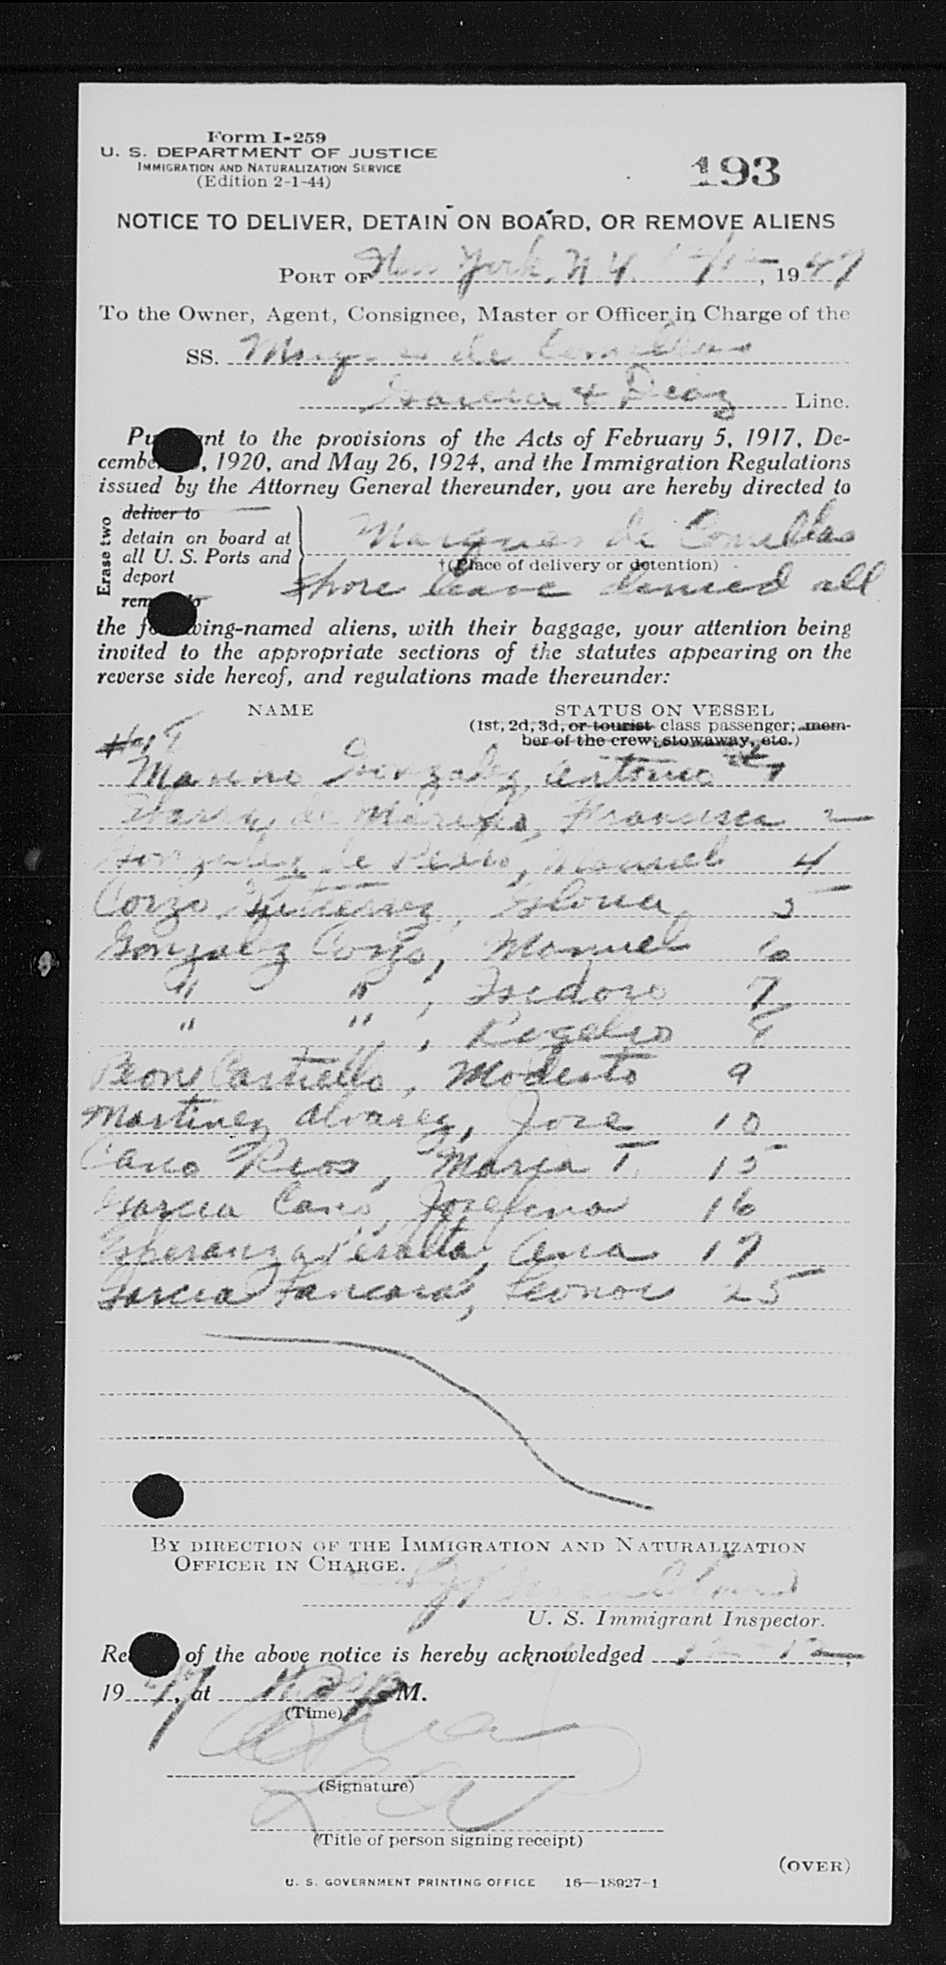 Form I-259
U. S. DEPARTMENT OF JUSTICE
IMMIGRATION AND NATURALIZATION SERVICE
(Edition 2-1-44)
193
NOTICE TO DELIVER, DETAIN ON BOARD, OR REMOVE ALIENS
PORT OF New York, N.Y. , 1947
To the Owner, Agent, Consignee, Master or Officer in Charge of the
SS. Marques de Comillas
Garcia & Diaz Line.
to the provisions of the Acts of February 5, 1917, De-
, 1920, and May 26, 1924, and the Immigration Regulations
issued by the Attorney General thereunder, you are hereby directed to
Erase two
deliver to
detain on board at
all U. S. Ports and
deport
Marques de Comillas
†(Place of delivery or detention)
Shore leave denied all
the following-named aliens, with their baggage, your attention being
invited to the appropriate sections of the statutes appearing on the
reverse side hereof, and regulations made thereunder:
NAME
STATUS ON VESSEL
(1st, 2d, 3d, or tourist class passenger; mem-
ber of the crew; stowaway, etc.)
Gonzalez, Antonio 1
de , Francisca 2
Gonzalez de , Manuel 4
Corzo Gutierrez, Gloria 5
Gonzalez Corzo, Manuel 6
" " , Isidoro 7
" " , Rogelio 8
Castiello, Modesto 9
Martinez Alvarez, Jose 10
Cano Rios, Maria T. 15
Garcia Cano, Josefina 16
Esperanza Peralta, Ana 17
Garcia , Leonor 25
BY DIRECTION OF THE IMMIGRATION AND NATURALIZATION
OFFICER IN CHARGE.
U. S. Immigrant Inspector.
of the above notice is hereby acknowledged 12-12,
1947, at M.
(Time)
(Signature)
(Title of person signing receipt)
(OVER)
U. S. GOVERNMENT PRINTING OFFICE 16—18927-1